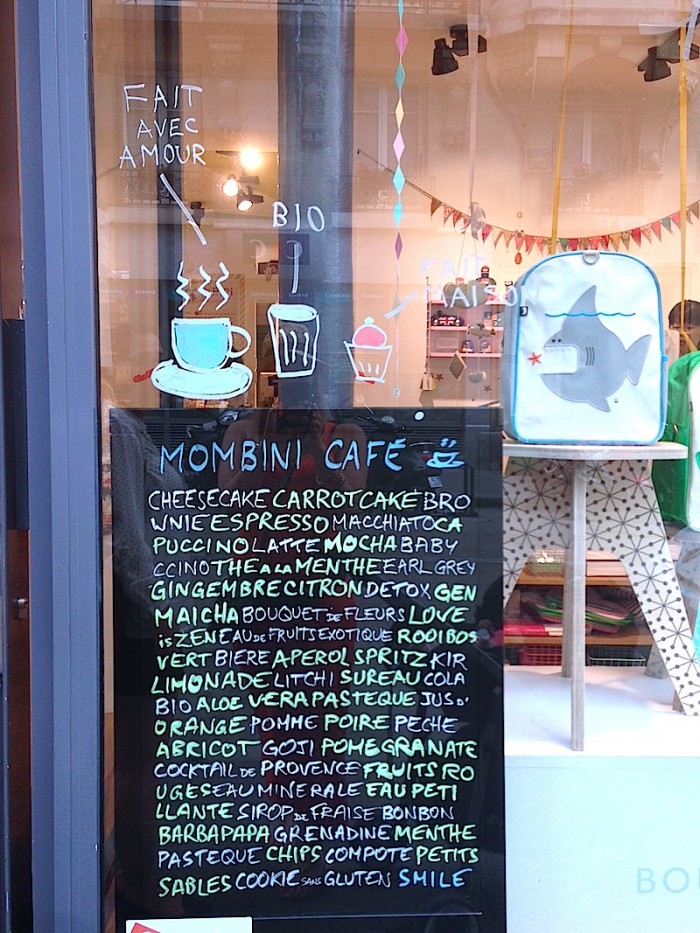 FAIT
AVEC
AMOUR
BIO
FAIT
MAISON
MOMBINI CAFÉ
CHEESECAKE CARROTCAKE BRO
WNIE ESPRESSO MACCHIATO CA
PUCCINO LATTE MOCHA BABY
CCINO THE A LA MENTHE EARL GREY
GINGEMBRE CITRON DETOX GEN
MAICHA BOUQUET DE FLEURS LOVE
iS ZEN EAU DE FRUITS EXOTIQUE ROOIBOS
VERT BIERE APEROL SPRITZ KIR
LIMONADE LITCHI SUREAU COLA
BIO ALOE VERA PASTEQUE JUS D'
ORANGE POMME POIRE PECHE
ABRICOT GOJI POMEGRANATE
COCKTAIL DE PROVENCE FRUITS RO
UGES EAU MINERALE EAU PETI
LLANTE SIROP DE FRAISE BONBON
BARBAPAPA GRENADINE MENTHE
PASTEQUE CHIPS COMPOTE PETITS
SABLES COOKIE SANS GLUTEN SMILE